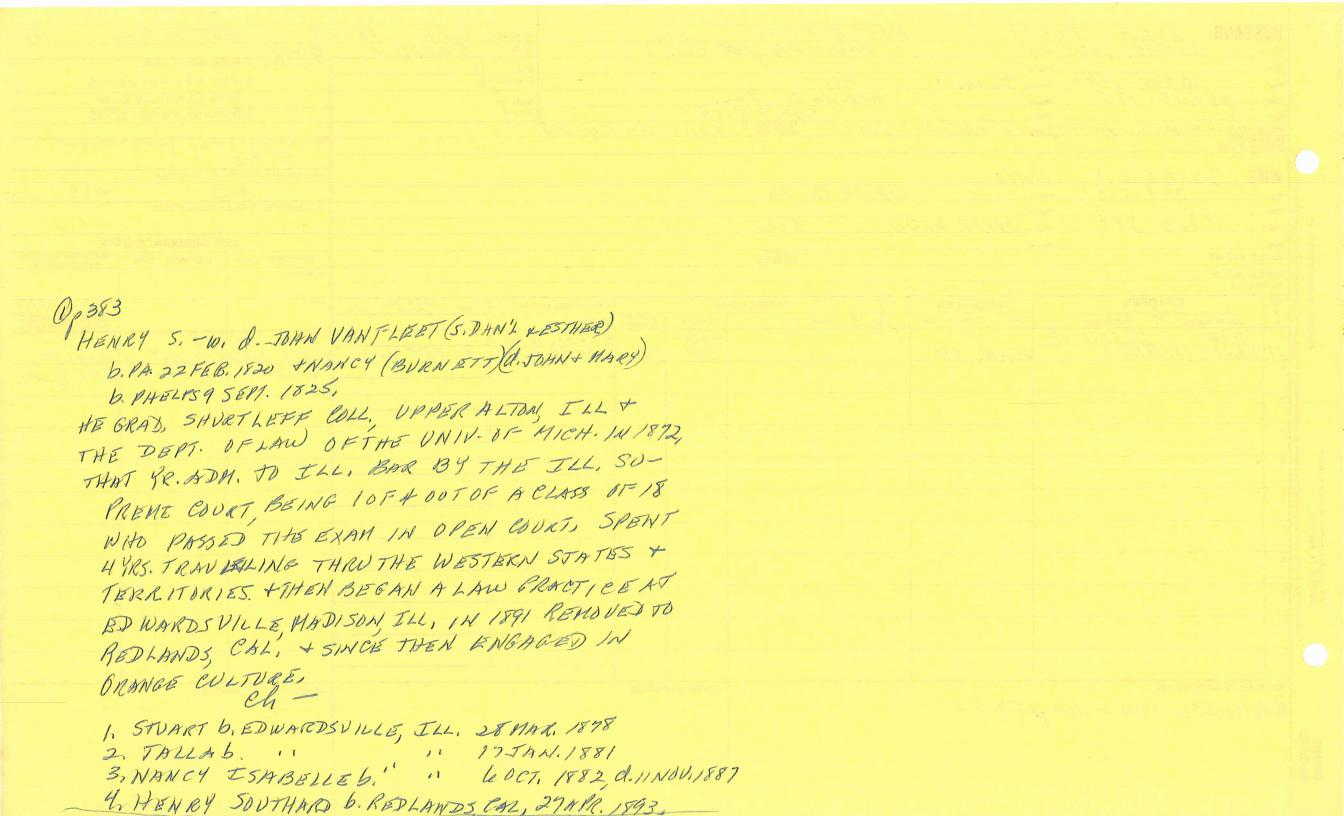 ① p383
HENRY S. - w. d. JOHN VANFLEET (S. DAN'L & ESTHER)
b. PA. 22 FEB. 1820 & NANCY (BURNETT) (d. JOHN & MARY)
b. PHELPS 9 SEPT. 1825,
HE GRAD. SHURTLEFF COLL., UPPER ALTON, ILL &
THE DEPT. OF LAW OF THE UNIV. OF MICH. IN 1872,
THAT YR. ADM. TO ILL. BAR BY THE ILL. SU-
PREME COURT, BEING 1 OF 4 OUT OF A CLASS OF 18
WHO PASSED THE EXAM IN OPEN COURT. SPENT
4 YRS. TRAVELING THRU THE WESTERN STATES &
TERRITORIES & THEN BEGAN A LAW PRACTICE AT
EDWARDSVILLE, MADISON, ILL, IN 1891 REMOVED TO
REDLANDS, CAL. & SINCE THEN ENGAGED IN
ORANGE CULTURE.
Ch —
1. STUART b. EDWARDSVILLE, ILL. 28 MAR. 1878
2. TALLA b. " " 17 JAN. 1881
3. NANCY ISABELLE b. " " 6 OCT. 1882, d. 11 NOV. 1887
4. HENRY SOUTHARD b. REDLANDS, CAL, 27 APR. 1893.